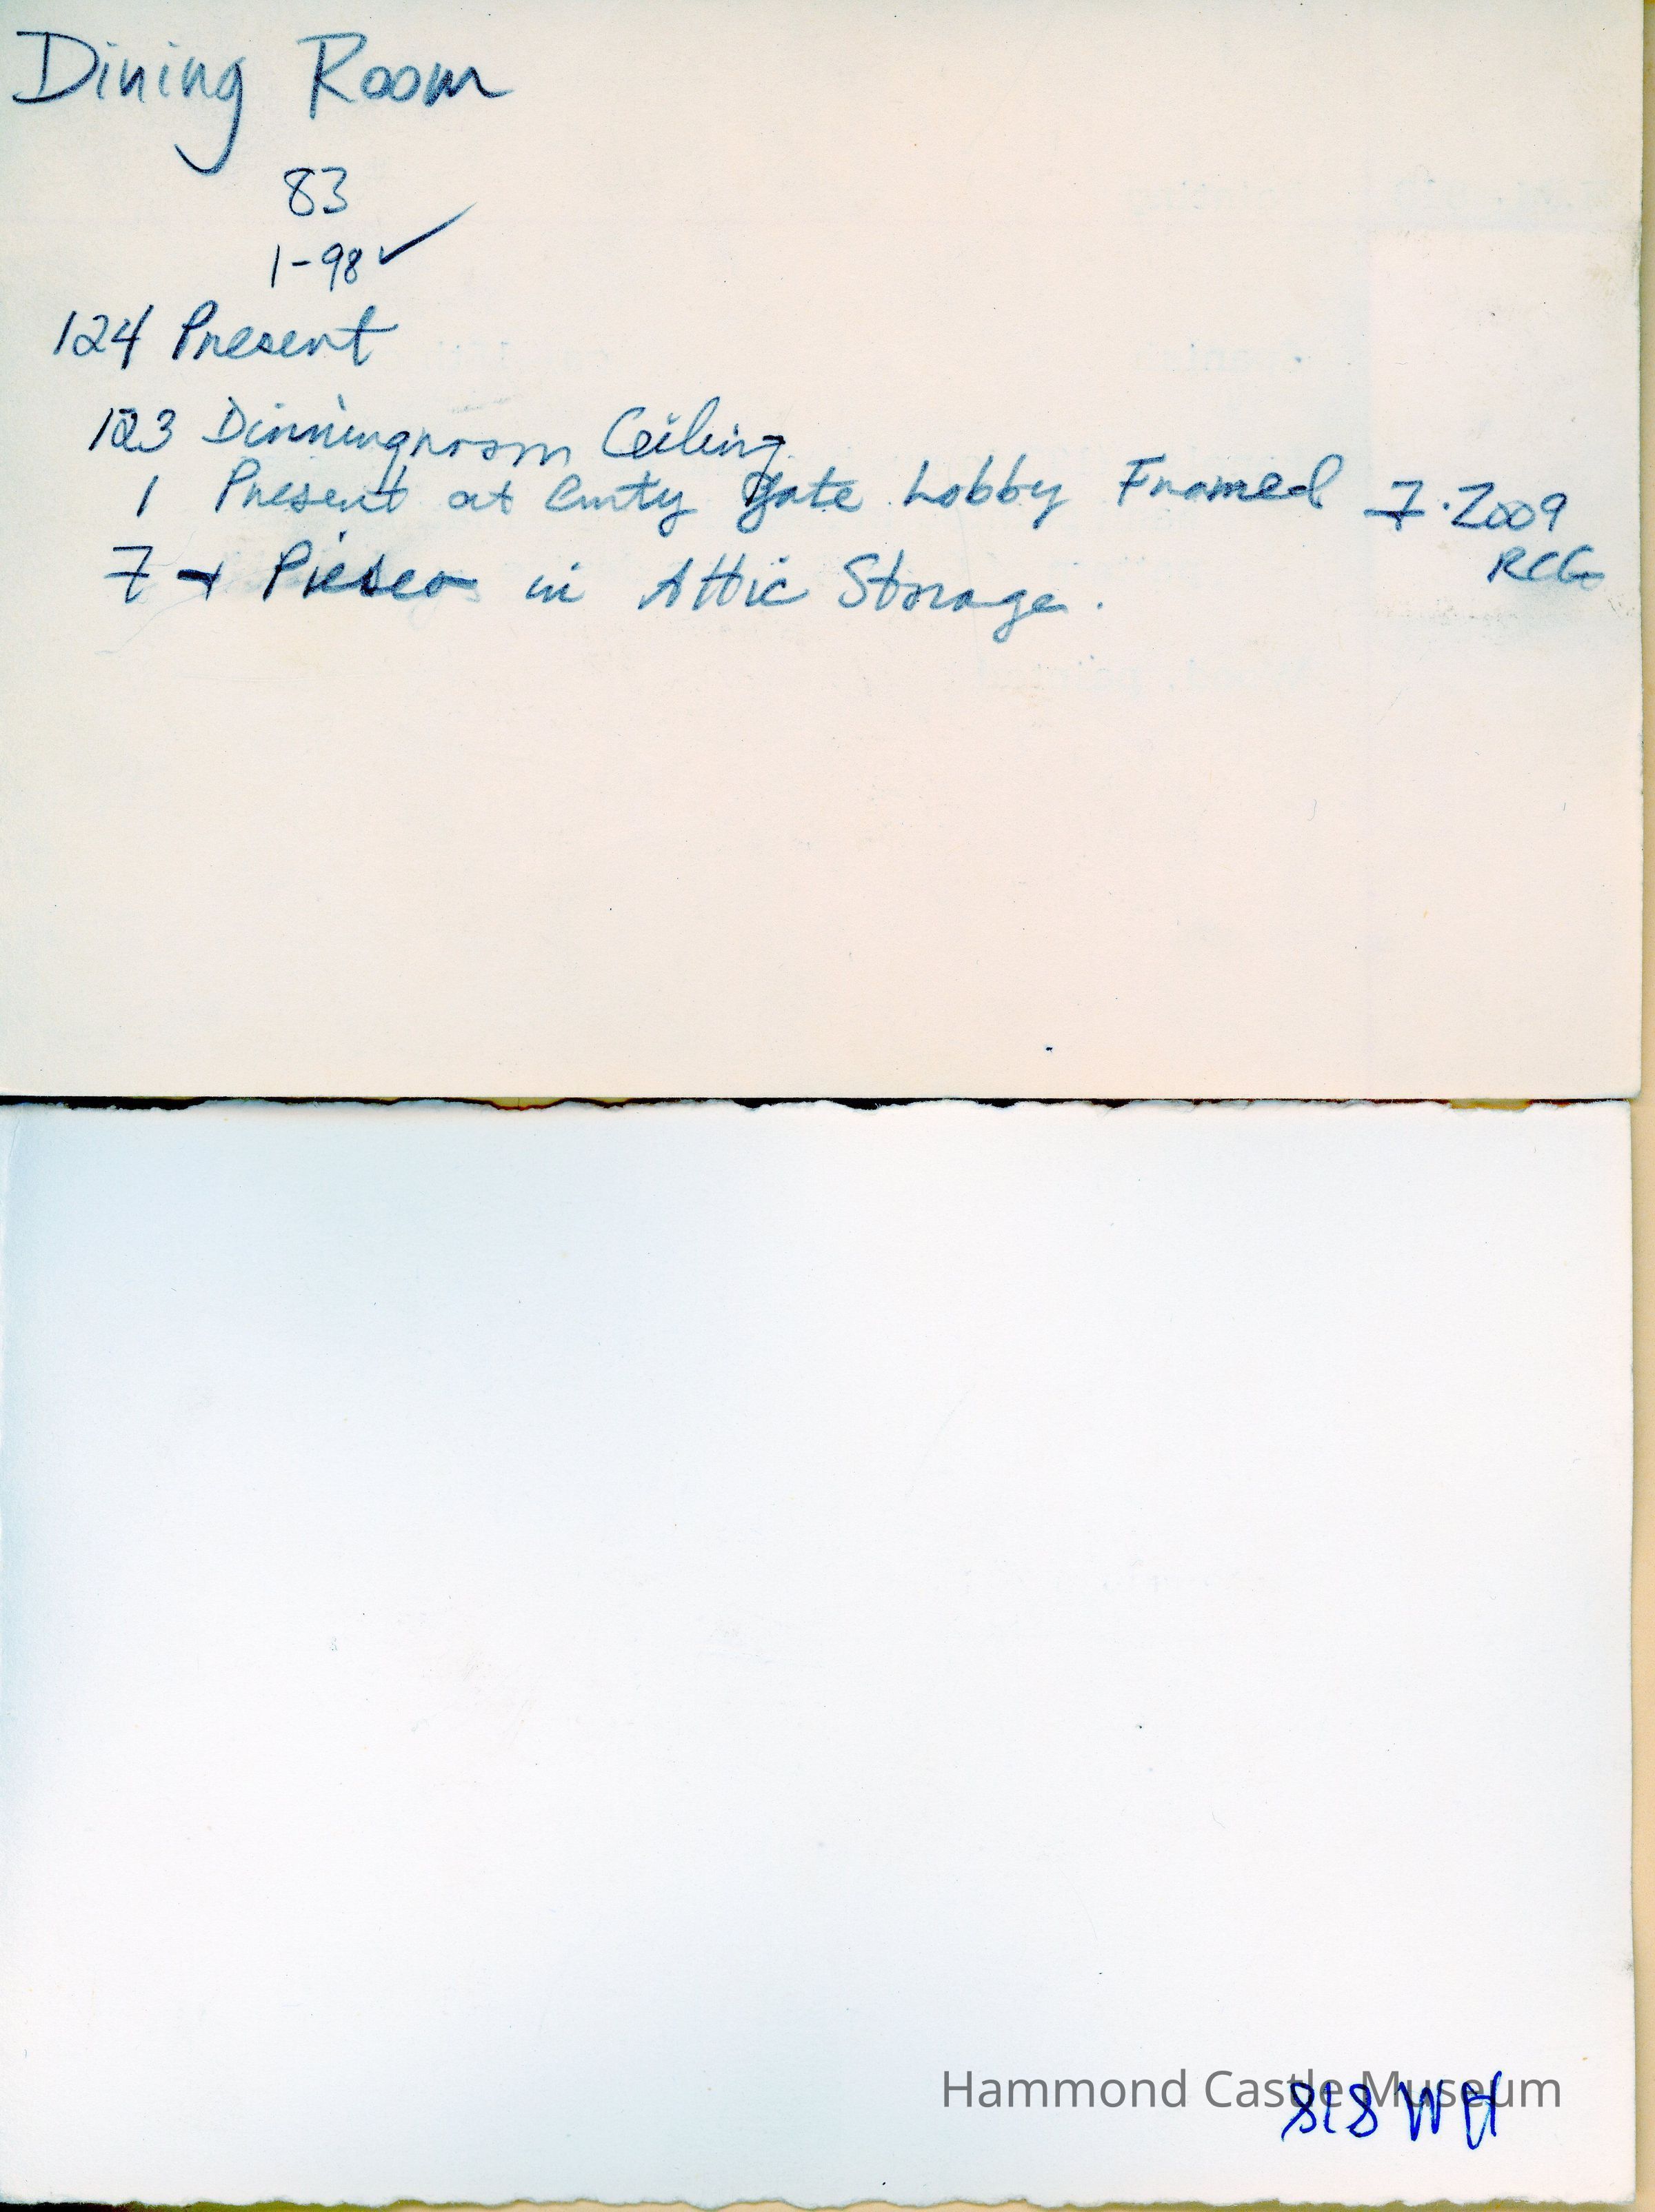 Dining Room
83
1-98 ✓
124 Present
123 Dinningroom Ceiling
1 Present at Enty Gate Lobby Framed 7.2009
RCG
7 + Pieses in Attic Storage.
Hammond Castle Museum
HM 818